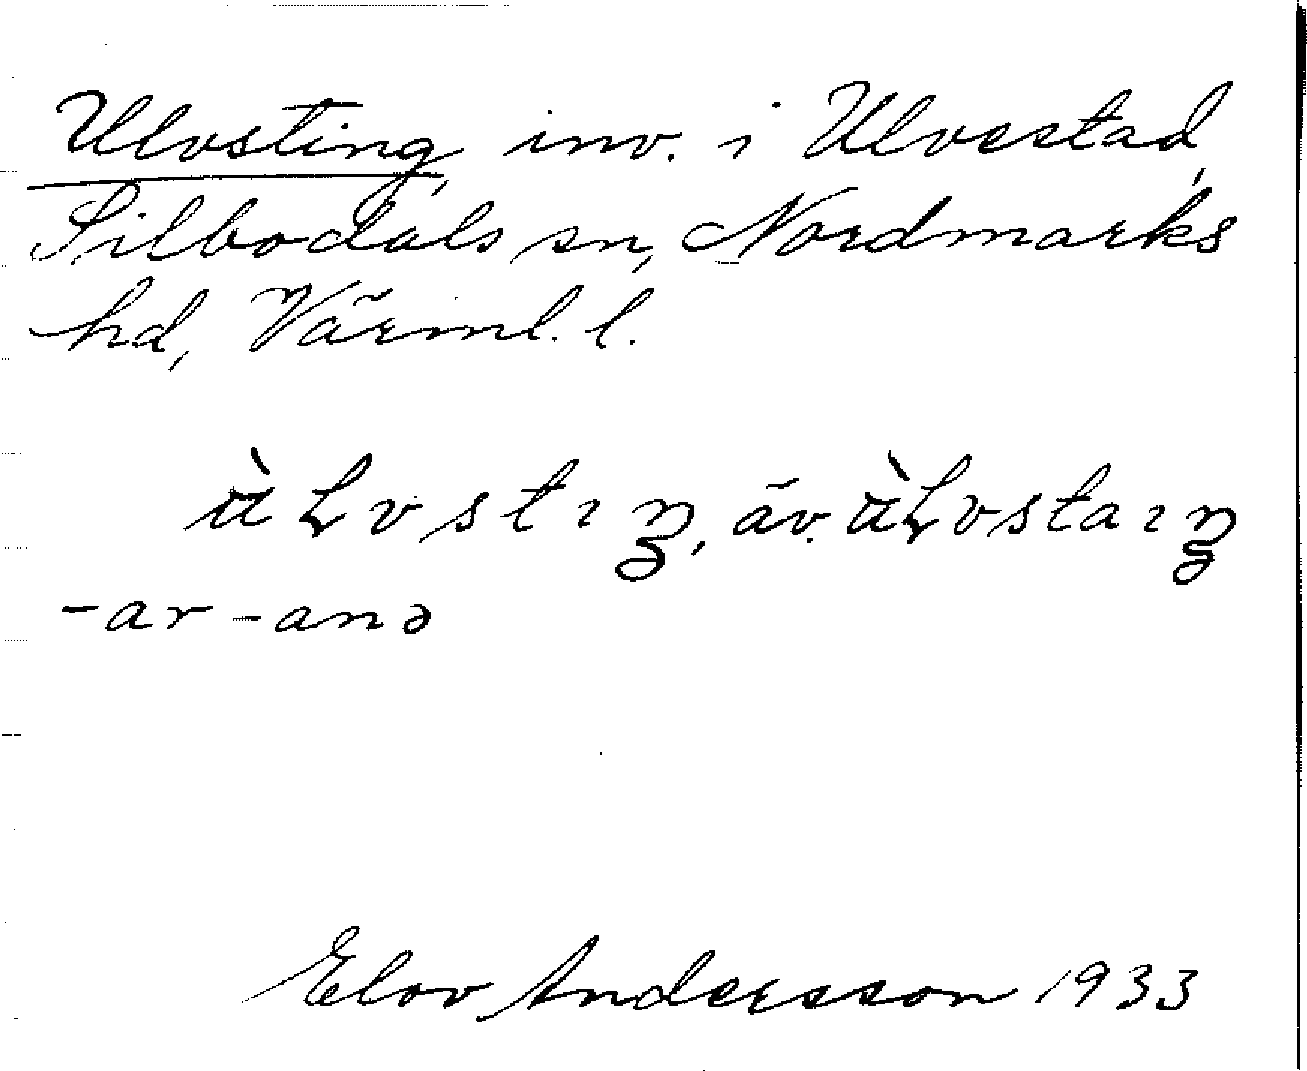 Ulvsting, inv. i Ulvestad,
Silbodals sn, Nordmarks
hd, Värml. l.
ùLvstıŋ, äv. ùLvstaıŋ
-ar -anə
Elov Andersson 1933